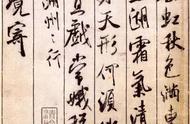 虹秋色滿東
五湖霜氣清
水天形何須
且戲常娥
湖州之行
境寄